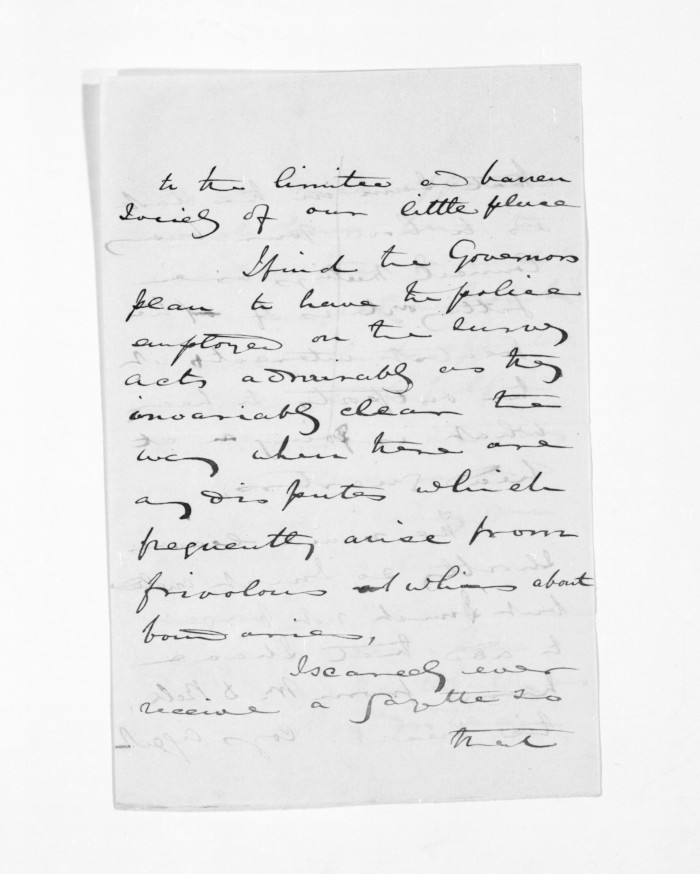 to the limited and barren
Society of our little place
I find the Governors
plan to have the police
employed on the survey
acts admirably as they
invariably clear the
way when there are
any disputes which
frequently arise from
frivolous whims about
boundaries,
I scarcely ever
receive a Gazette so
that